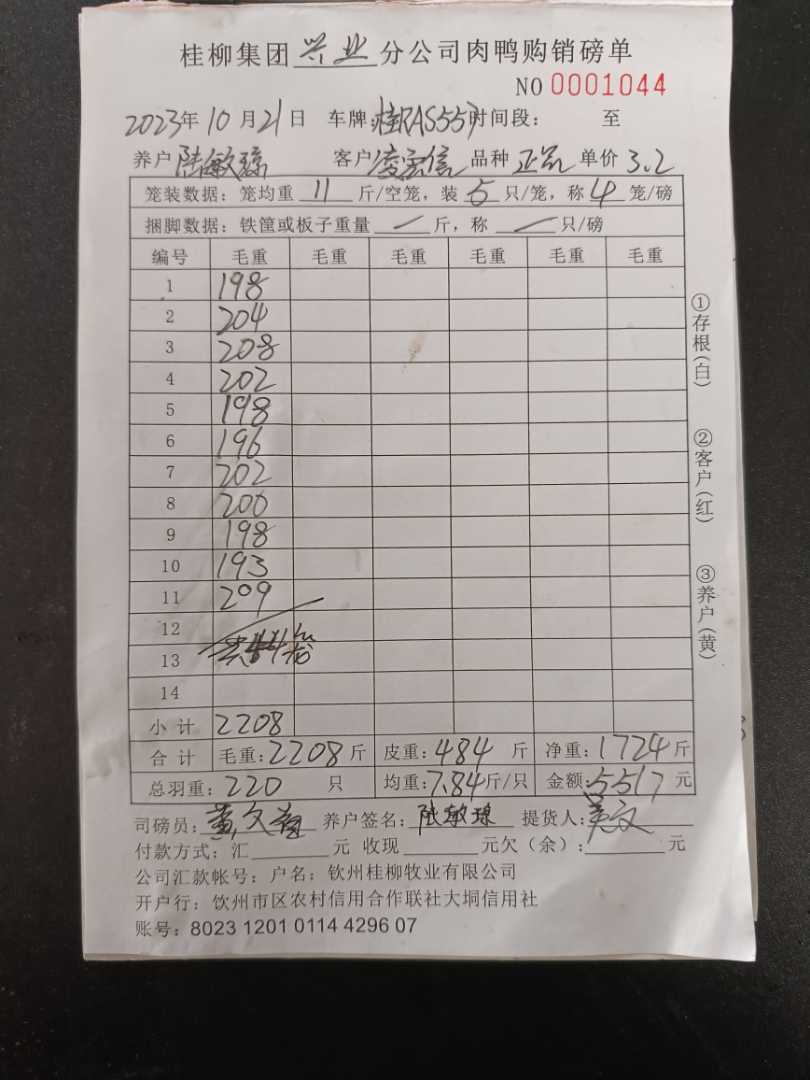 桂柳集团兴业分公司肉鸭购销磅单
NO 0001044
2023年10月21日 车牌:桂RAS557时间段: 至
养户陆敏琼 客户凌宏信 品种 单价3.2
笼装数据: 笼均重 11 斤/空笼, 装 5 只/笼, 称 4 笼/磅
捆脚数据: 铁筐或板子重量 — 斤, 称 — 只/磅
编号 毛重 毛重 毛重 毛重 毛重 毛重
1 198
2 204
3 208
4 202
5 198
6 196
7 202
8 200
9 198
10 193
11 209
12
13 共44笼
14
小计 2208
合计 毛重:2208斤 皮重:484斤 净重:1724斤
总羽重:220只 均重:7.84斤/只 金额:5517元
司磅员: 养户签名:陆敏琼 提货人:
付款方式: 汇 元 收现 元欠(余): 元
公司汇款帐号: 户名: 钦州桂柳牧业有限公司
开户行: 钦州市区农村信用合作联社大垌信用社
账号: 8023 1201 0114 4296 07
①存根(白)
②客户(红)
③养户(黄)